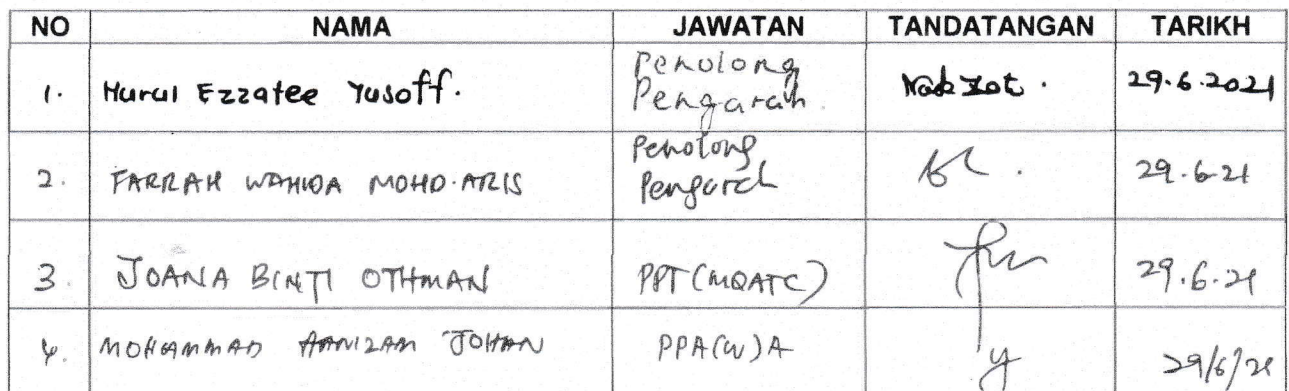 NO NAMA JAWATAN TANDATANGAN TARIKH
1. Nurul Ezzatee Yusoff. Penolong Pengarah 29.6.2021
2. FARRAH WAHIDA MOHD.ARIS Penolong Pengarah 29.6.21
3. JOANA BINTI OTHMAN PPT (MQATC) 29.6.21
4. MOHAMMAD JOHAN PPA(W)A 29/6/21